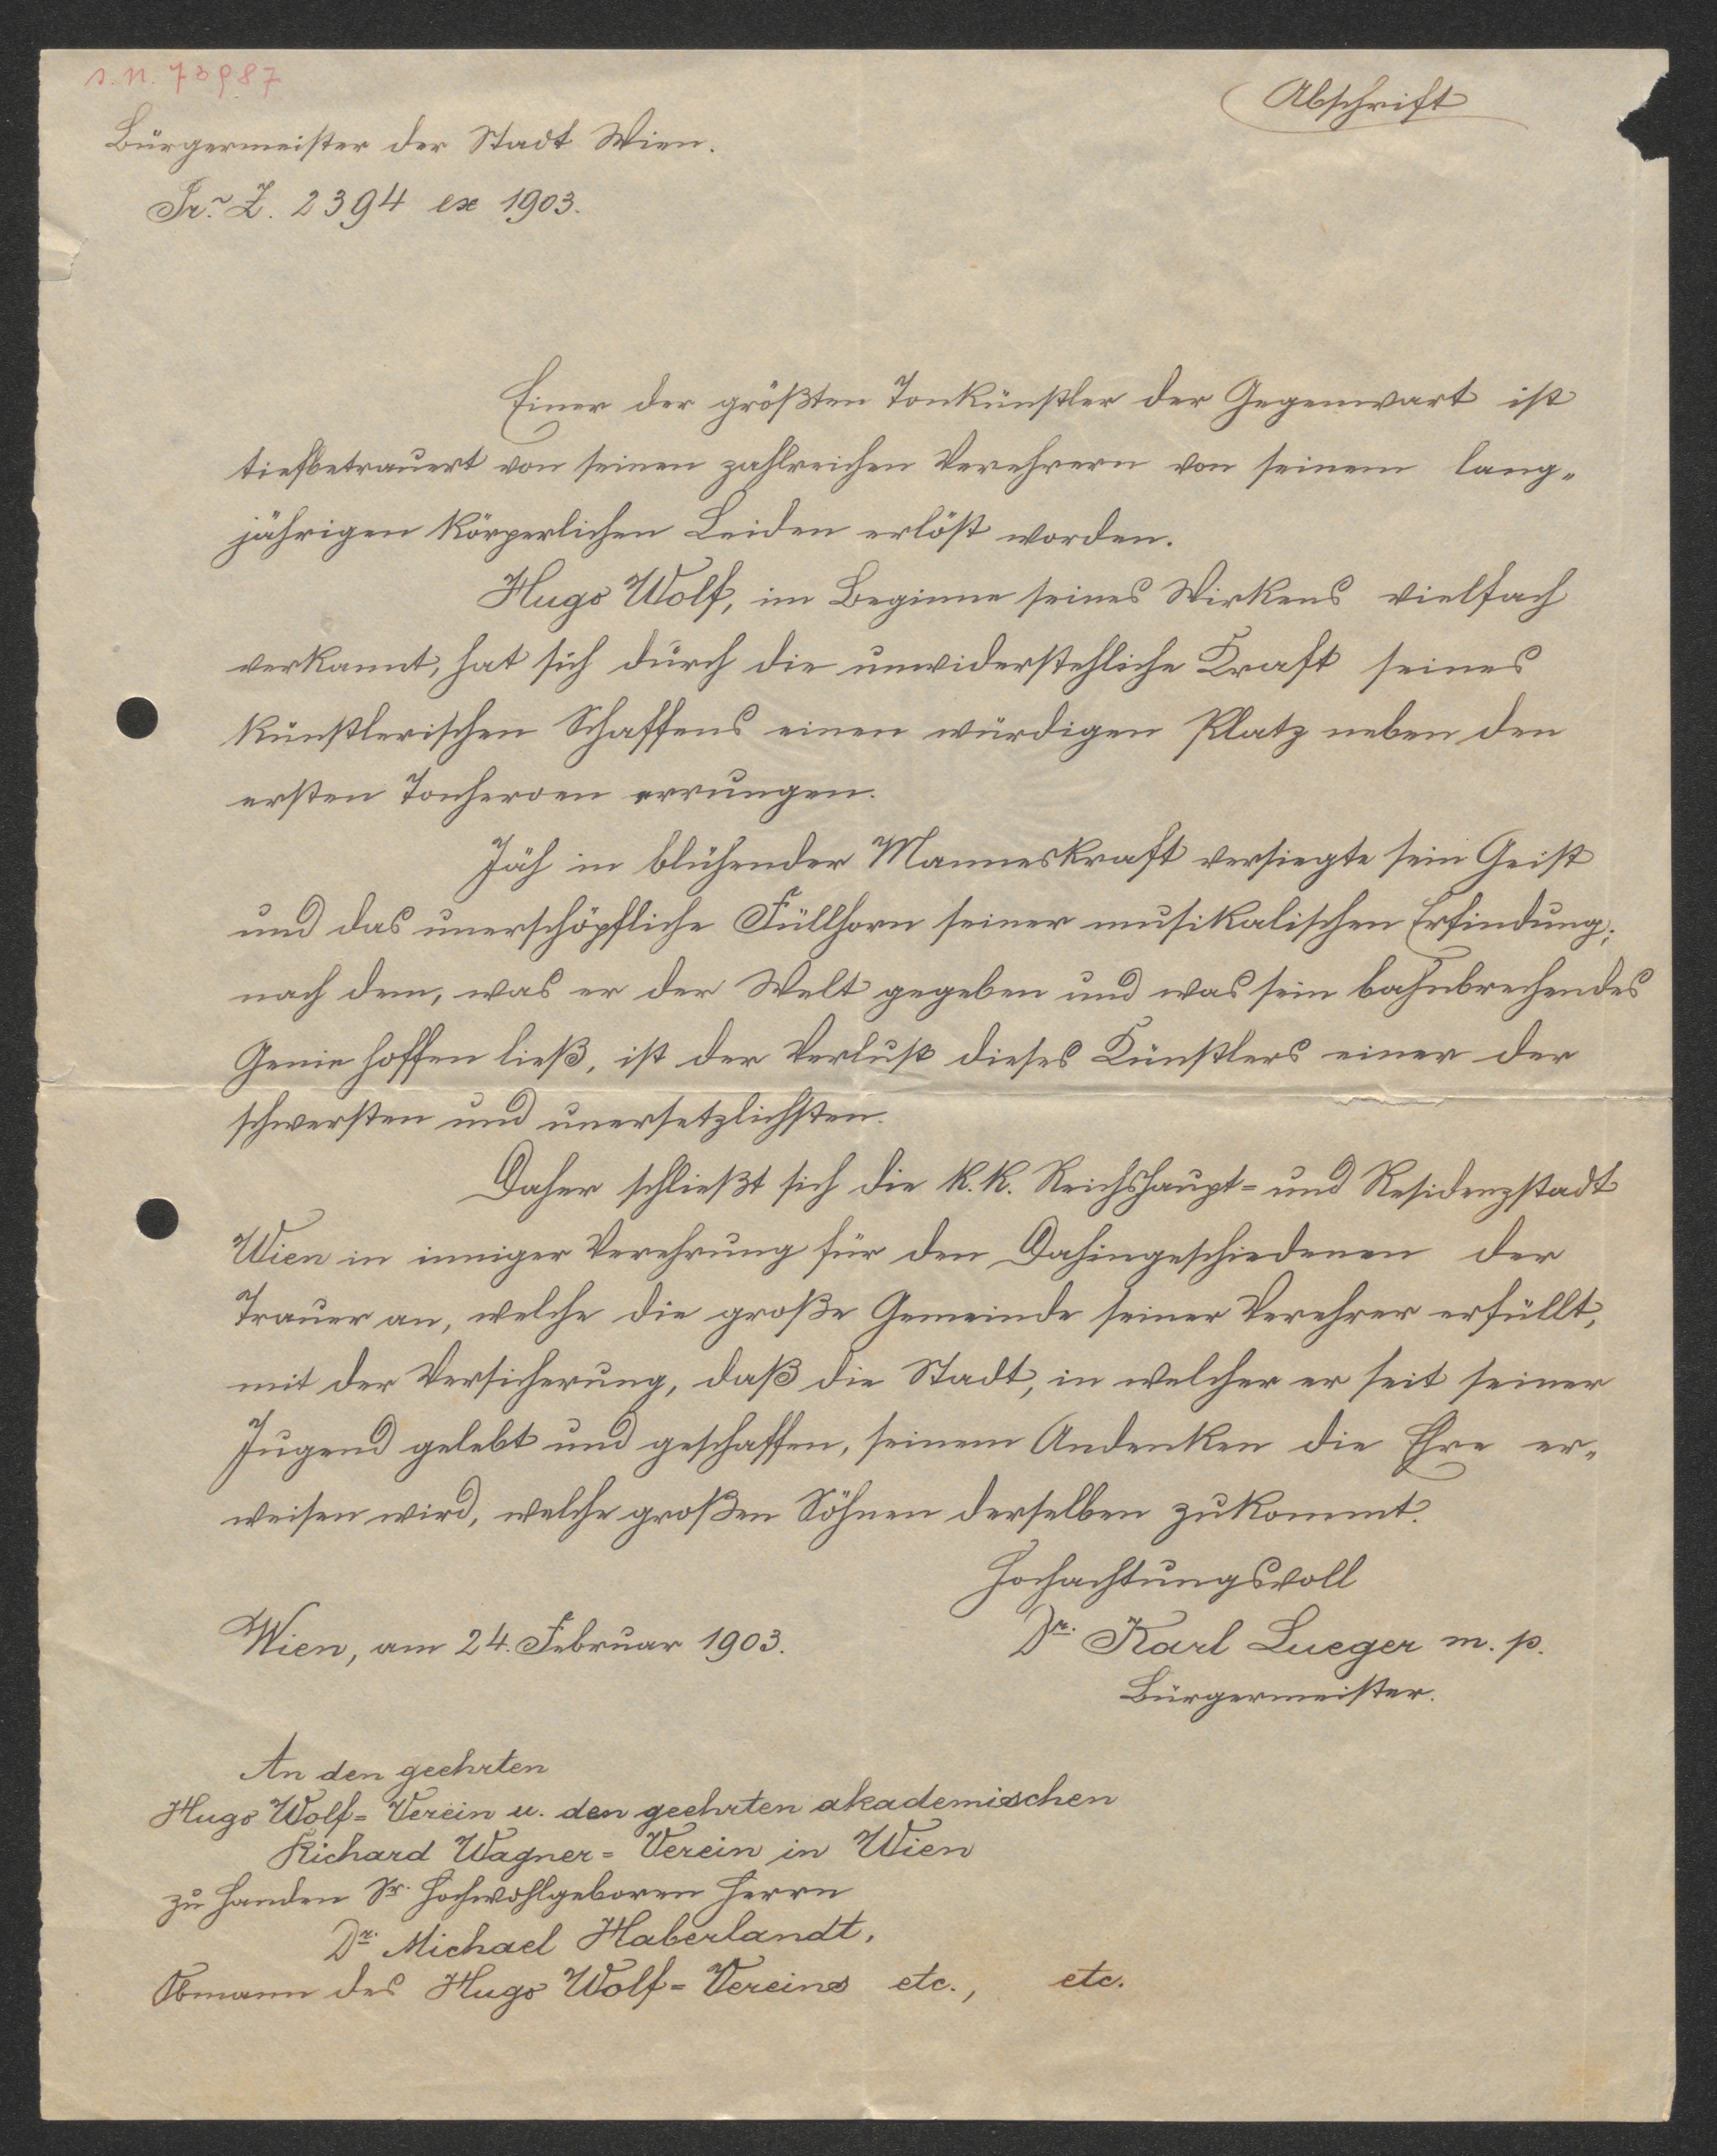 Abschrift
Bürgermeister der Stadt Wien.
Pr. Z. 2394 ex 1903.
Einer der größten Tonkünstler der Gegenwart ist
tiefbetrauert von seinen zahlreichen Verehrern von seinem lang„
jährigen körperlichen Leiden erlöst worden.
Hugo Wolf, im Beginne seines Wirkens vielfach
verkannt, hat sich durch die unwiderstehliche Kraft seines
künstlerischen Schaffens einen würdigen Platz neben den
ersten Tonheroen errungen.
Jäh in blühender Manneskraft versiegte sein Geist
und das unerschöpfliche Füllhorn seiner musikalischen Erfindung;
nach dem, was er der Welt gegeben und was sein bahnbrechendes
Genie hoffen ließ, ist der Verlust dieses Künstlers einer der
schwersten und unersetzlichsten.
Daher schließt sich die k.k. Reichshaupt= und Residenzstadt
Wien in inniger Verehrung für den Dahingeschiedenen der
Trauer an, welche die große Gemeinde seiner Verehrer erfüllt,
mit der Versicherung, daß die Stadt, in welcher er seit seiner
Jugend gelebt und geschaffen, seinem Andenken die Ehre er„
weisen wird, welche großen Söhnen derselben zukommt.
Hochachtungsvoll
Wien, am 24. Februar 1903.
Dr. Karl Lueger m. p.
Bürgermeister.
An den geehrten
Hugo Wolf= Verein u. den geehrten akademischen
Richard Wagner= Verein in Wien
zu Handen Sr. Hochwohlgeboren Herrn
Dr. Michael Haberlandt,
Obmann des Hugo Wolf= Vereins etc., etc.